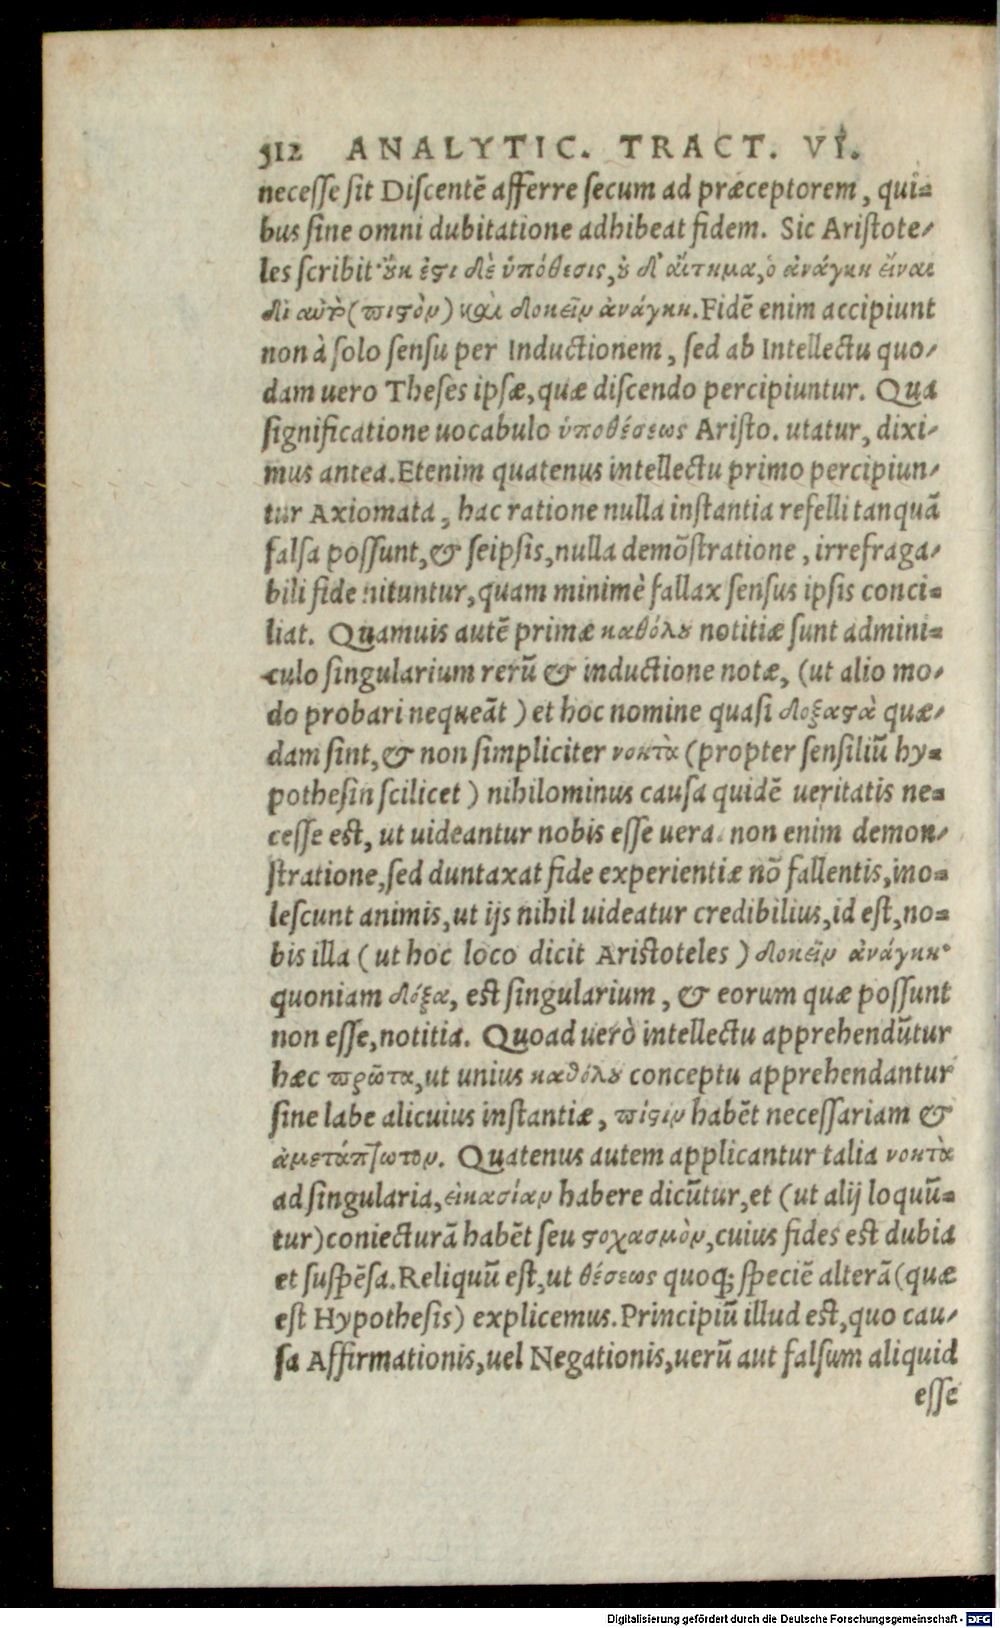 512 ANALYTIC. TRACT. VI.
necesse sit Discentē afferre secum ad præceptorem, qui=
bus sine omni dubitatione adhibeat fidem. Sic Aristote/
les scribit· ὐκ ἔϛι δὲ ὑπόθεσις, ὐδ' αἴτημα, ὁ ἀνάγκη εἶναι
δι αὑτὸ (πιϛὸν) καὶ δοκεῖν ἀνάγκη. Fidē enim accipiunt
non à solo sensu per Inductionem, sed ab Intellectu quo/
dam uero Theses ipsæ, quæ discendo percipiuntur. Qua
significatione uocabulo ὑποθέσεως Aristo. utatur, dixi/
mus antea. Etenim quatenus intellectu primo percipiun/
tur Axiomata, hac ratione nulla instantia refelli tanquā
falsa possunt, & seipsis, nulla demōstratione, irrefraga/
bili fide nituntur, quam minimè fallax sensus ipsis conci=
liat. Quamuis autē primæ καθόλȣ notitiæ sunt admini=
culo singularium rerū & inductione notæ, (ut alio mo/
do probari nequeāt) et hoc nomine quasi δοξαϛὰ quæ/
dam sint, & non simpliciter νοητὰ (propter sensiliū hy=
pothesin scilicet) nihilominus causa quidē ueritatis ne=
cesse est, ut uideantur nobis esse uera. non enim demon/
stratione, sed duntaxat fide experientiæ nō fallentis, ino=
lescunt animis, ut ijs nihil uideatur credibilius, id est, no=
bis illa (ut hoc loco dicit Aristoteles) δοκεῖν ἀνάγκη·
quoniam δόξα, est singularium, & eorum quæ possunt
non esse, notitia. Quoad uerò intellectu apprehendūtur
hæc πρῶτα, ut unius καθόλȣ conceptu apprehendantur
sine labe alicuius instantiæ, πίϛιν habēt necessariam &
ἀμετάπτωτον. Quatenus autem applicantur talia νοητὰ
ad singularia, εἰκασίαν habere dicūtur, et (ut alij loquū=
tur) coniecturā habēt seu ϛοχασμὸν, cuius fides est dubia
et suspēsa. Reliquū est, ut θέσεως quoq; speciē alterā (quæ
est Hypothesis) explicemus. Principiū illud est, quo cau/
sa Affirmationis, uel Negationis, uerū aut falsum aliquid
esse
Digitalisierung gefördert durch die Deutsche Forschungsgemeinschaft - DFG